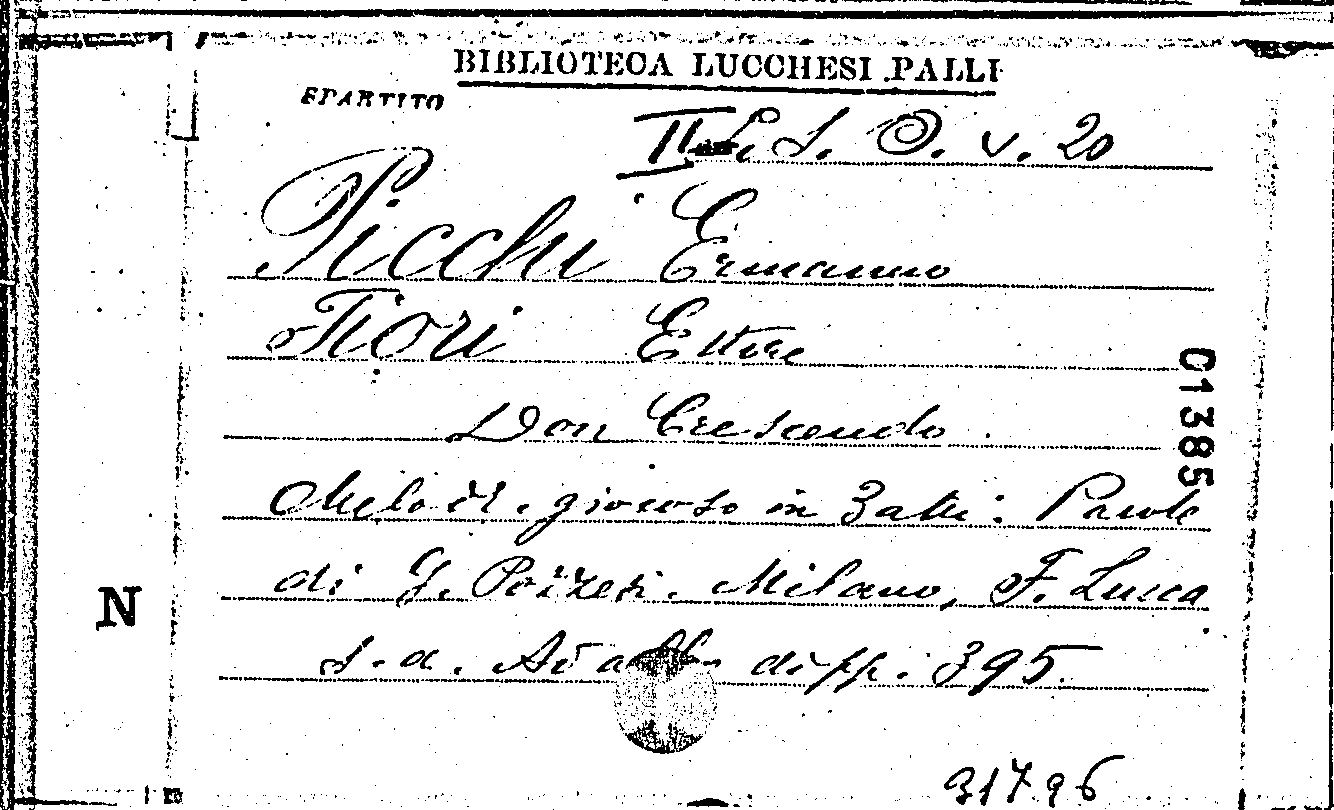 BIBLIOTECA LUCCHESI PALLI
SPARTITO
II S. O. v. 20
Picchi Ermanno
Fiori Ettore
Don Crescendo.
Melodr. giocoso in 3 atti. Parole
di G. Pozzesi. Milano, F. Lucca
s. a. di pp. 395.
01385
N
31796